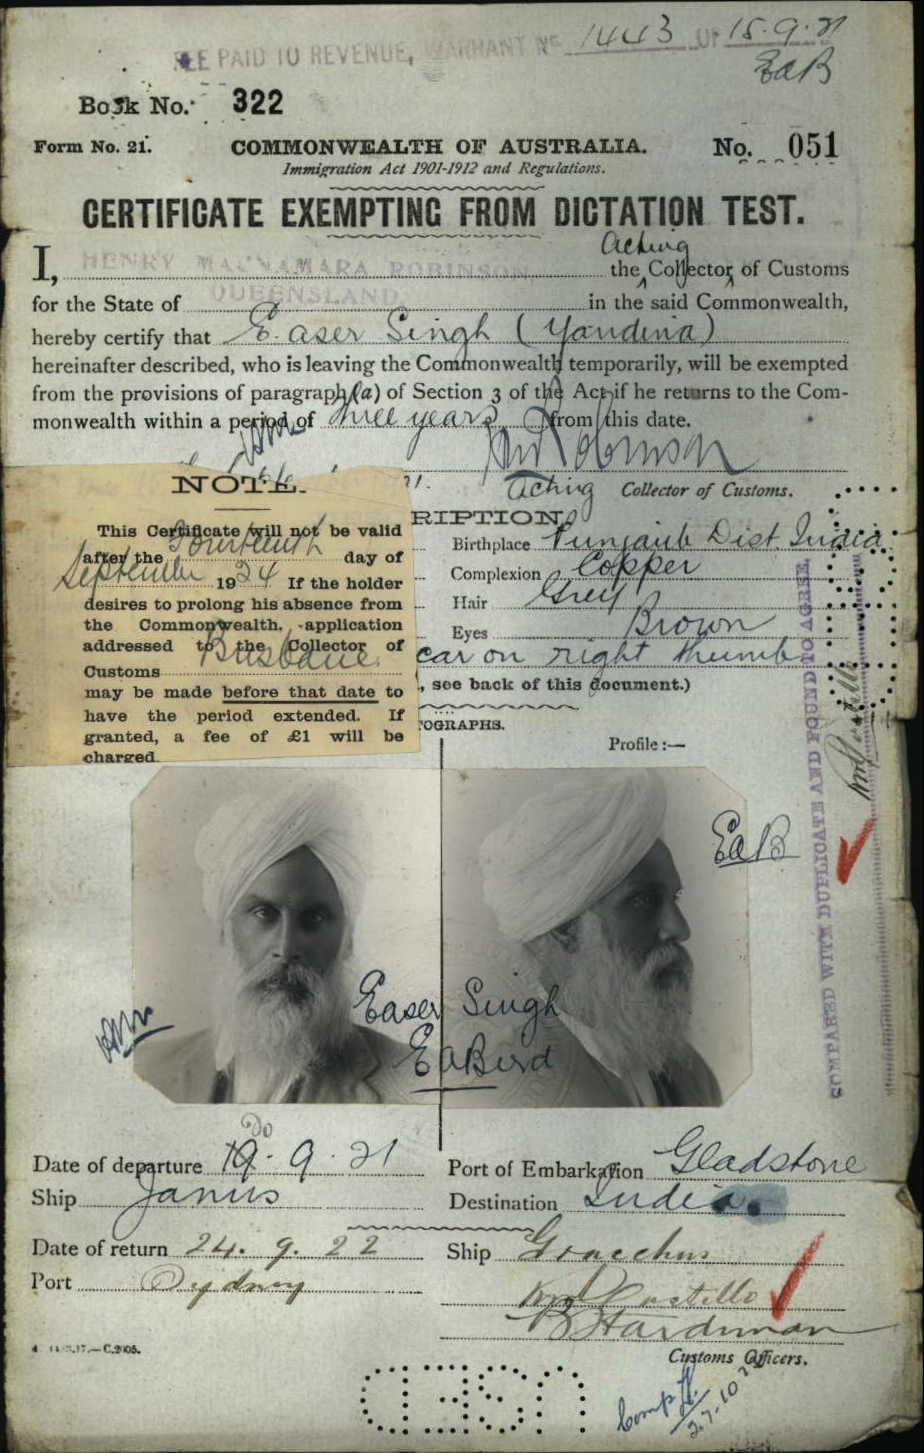 FEE PAID TO REVENUE, WARRANT No 1443 OF 15.9.21
EaB
Book No. 322
Form No. 21. COMMONWEALTH OF AUSTRALIA. No. 051
Immigration Act 1901-1912 and Regulations.
CERTIFICATE EXEMPTING FROM DICTATION TEST.
Acting
I, HENRY MACNAMARA ROBINSON the Collector of Customs
for the State of QUEENSLAND in the said Commonwealth,
hereby certify that Easer Singh (Yandina)
hereinafter described, who is leaving the Commonwealth temporarily, will be exempted
from the provisions of paragraph (a) of Section 3 of the Act if he returns to the Com-
monwealth within a period of three years from this date.
HM Robinson
Acting Collector of Customs.
NOTE.
This Certificate will not be valid
after the Fourteenth day of
September 1924 If the holder
desires to prolong his absence from
the Commonwealth, application
addressed to the Collector of
Customs Brisbane
may be made before that date to
have the period extended. If
granted, a fee of £1 will be
charged.
RIPTION
Birthplace Punjaub Dist. India
Complexion Copper
Hair Grey
Eyes Brown
car on right thumb
, see back of this document.)
TOGRAPHS.
Profile :—
COMPARED WITH DUPLICATE AND FOUND TO AGREE
EaB
Easer Singh
EaBird
20
Date of departure 19. 9. 21 Port of Embarkation Gladstone
Ship Janus Destination India.
Date of return 24. 9. 22 Ship Gracchus
Port Sydney
Customs Officers.
C.2005.